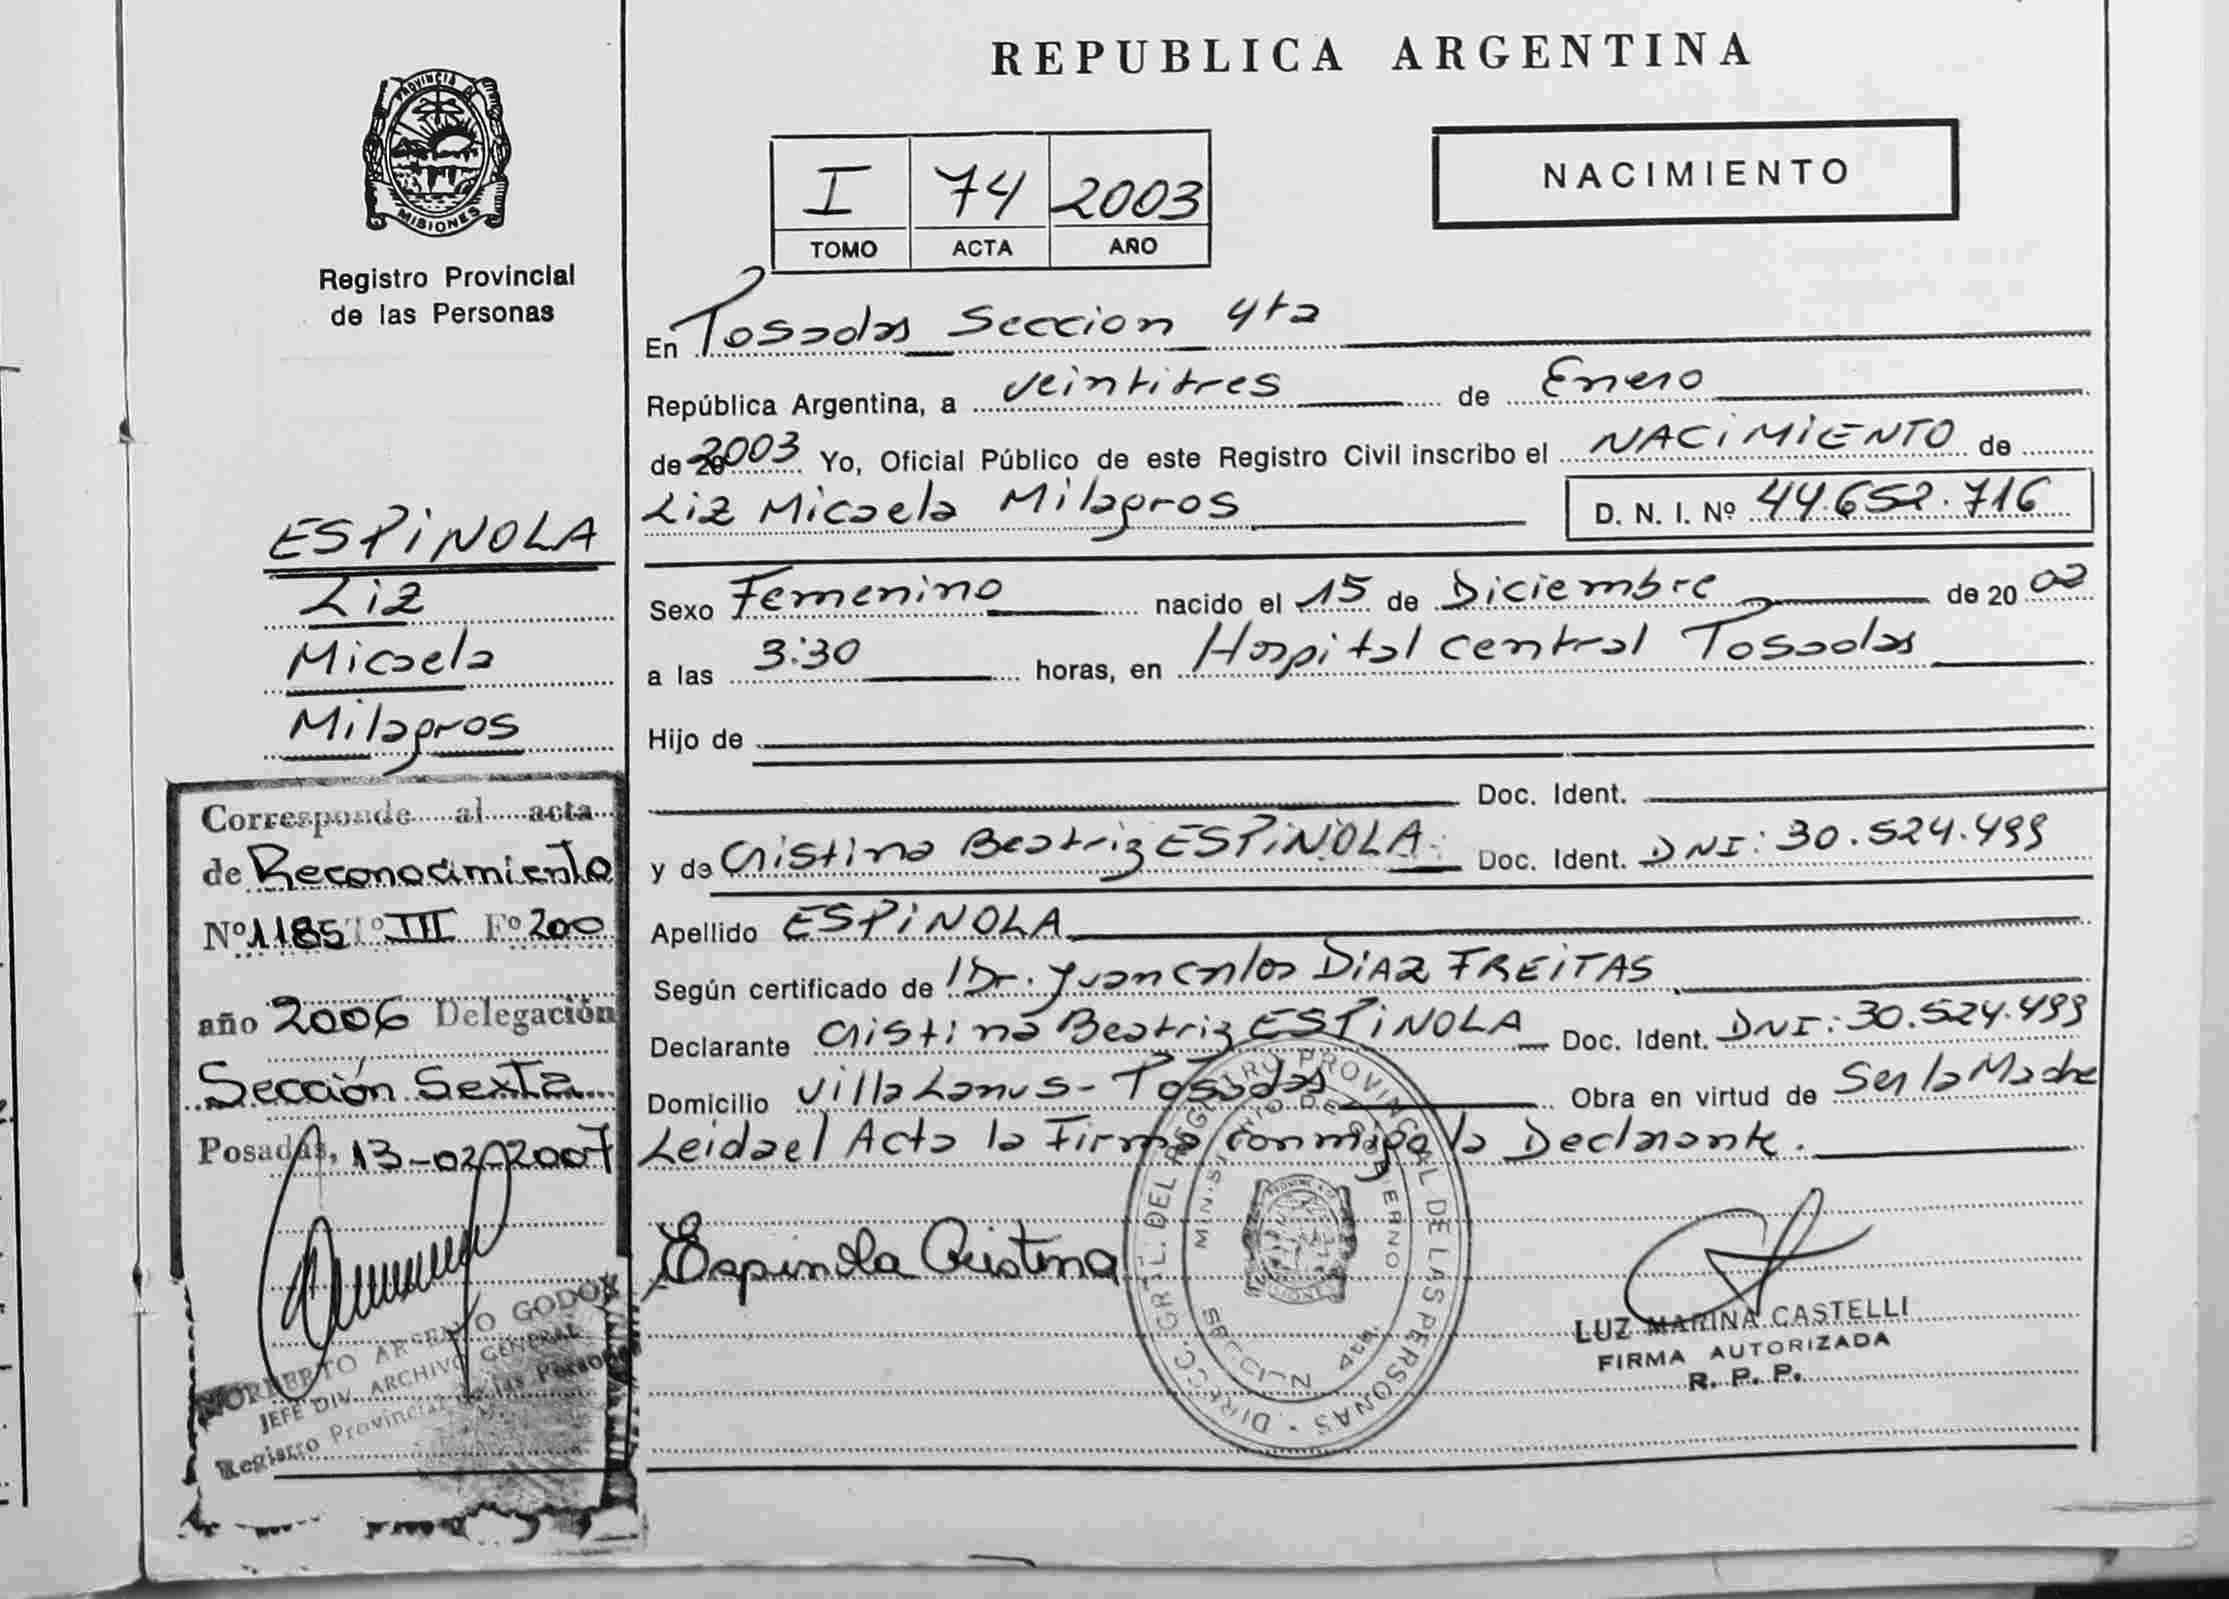 REPUBLICA ARGENTINA
NACIMIENTO
I 74 2003
TOMO ACTA AÑO
PROVINCIA DE
MISIONES
Registro Provincial
de las Personas
ESPINOLA
Liz
Micaela
Milagros
Corresponde al acta
de Reconocimiento
Nº 1185 Tº III Fº 200
año 2006 Delegación
Sección Sexta
Posadas, 13-02-2007
NORBERTO ARSENIO GODOY
JEFE DIV. ARCHIVO GENERAL
Registro Provincial de las Personas
En Posadas Seccion 4ta
República Argentina, a veintitres de Enero
de 2003 Yo, Oficial Público de este Registro Civil inscribo el NACIMIENTO de
Liz Micaela Milagros D. N. I. Nº 44.652.716
Sexo Femenino nacido el 15 de Diciembre de 20 02
a las 3:30 horas, en Hospital Central Posadas
Hijo de
Doc. Ident.
y de Cristina Beatriz ESPINOLA Doc. Ident. DNI: 30.524.499
Apellido ESPINOLA
Según certificado de Dr. Juan Carlos DIAZ FREITAS
Declarante Cristina Beatriz ESPINOLA Doc. Ident. DNI: 30.524.499
Domicilio Villa Lanus - Posadas Obra en virtud de Ser la Madre
Leida el Acta la Firma conmigo la Declarante.
Espinola Cristina
DIRECC. GRAL. DEL REGISTRO PROVINCIAL DE LAS PERSONAS
MINISTERIO DE GOBIERNO
SECCION 4ta.
LUZ MARINA CASTELLI
FIRMA AUTORIZADA
R. P. P.